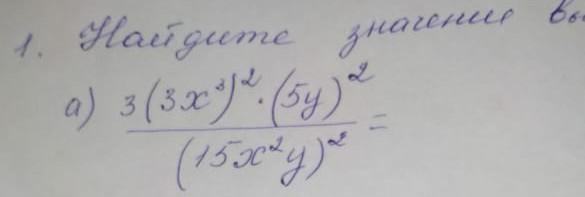 1. Найдите значение вы
а) 3(3x³)²·(5y)²
(15x²y)² =